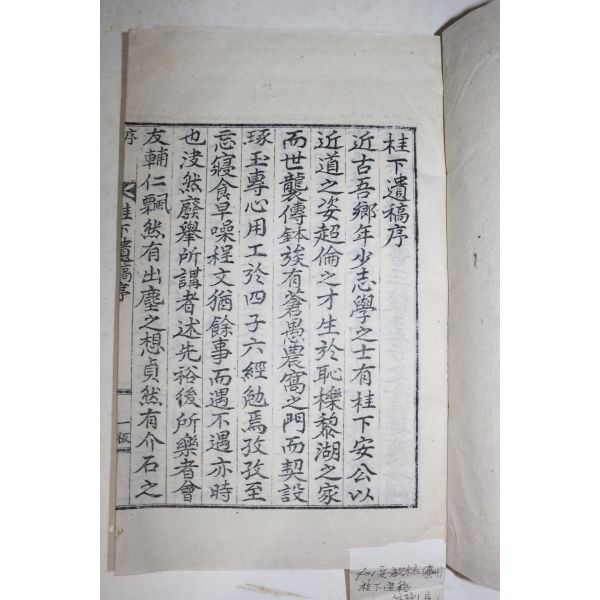 桂下遺稿序
近古吾鄉年少志學之士有桂下安公以
近道之姿超倫之才生於恥櫟黎湖之家
而世襲傳鉢族有蒼愚農窩之門而契設
琢玉專心用工於四子六經勉焉孜孜至
忘寢食早噪程文猶餘事而遇不遇亦時
也淩然廢舉所講者述先裕後所樂者會
友輔仁飄然有出塵之想貞然有介石之
序
桂下遺稿序
一板
桂下遺稿